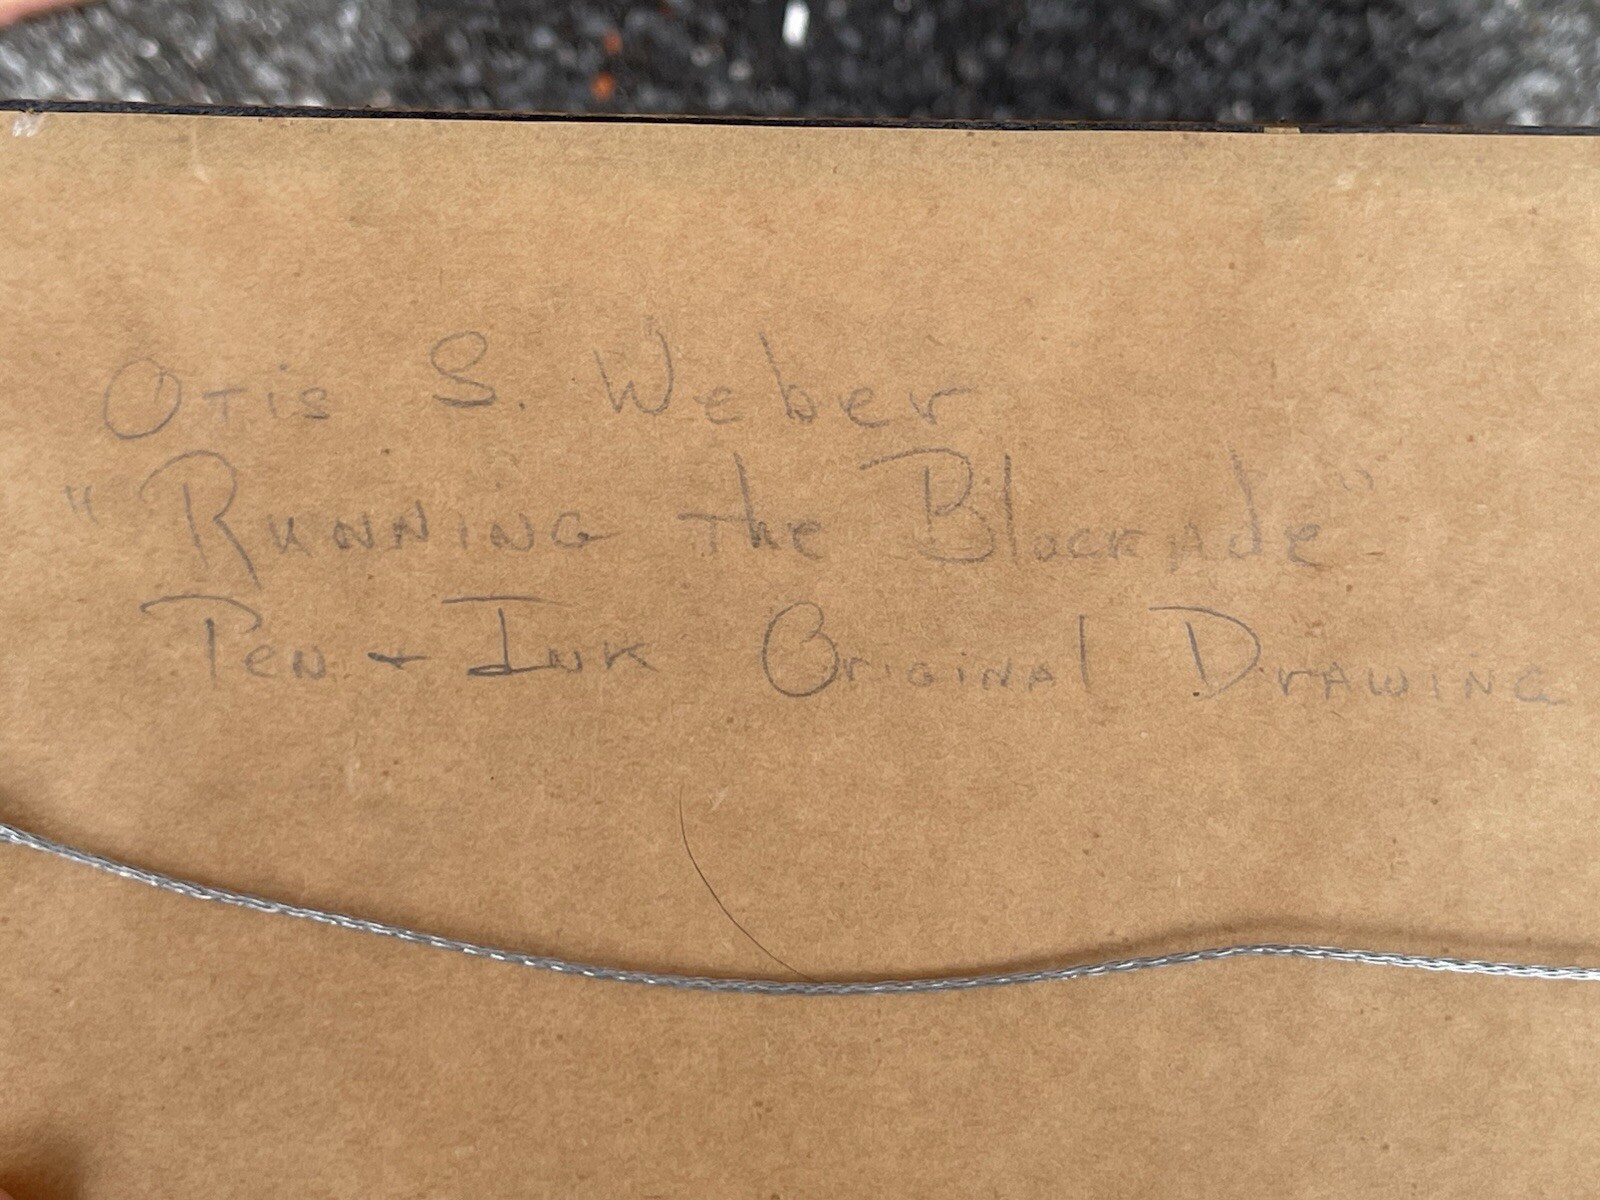 Otis S. Weber
"Running the Blockade"
Pen + Ink Original Drawing